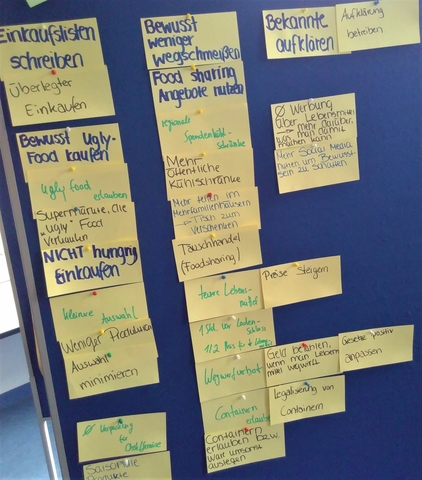 Einkaufslisten
schreiben
Überlegter
Einkaufen
Bewusst Ugly-
Food kaufen
Ugly food
erlauben
Supermärkte, die
"Ugly" Food
verkaufen
NICHT hungrig
Einkaufen
kleinere Auswahl
Weniger Produzieren
Auswahl
minimieren
Verpackung
für
Saisonale
Produkte
Bewusst
weniger
wegschmeißen
Food sharing
Angebote nutzen
regionale
Spendenkühl-
schränke
Mehr
öffentliche
Kühlschränke
Mehr teilen im
Mehrfamilienhäusern
→ Tisch zum
Verschenken
Tauschhandel
(Foodsharing)
teure Lebens-
mittel
1 Std. vor Laden-
schluss
1/2 Preis
Wegwerfverbot
Containern
erlauben
Containern
erlauben bzw.
Ware umsonst
auslegen
Bekannte
aufklären
Aufklärung
betreiben
Ø Werbung
über Lebensmittel
→ mehr darüber,
was man damit
machen kann
Mehr Social Media
nutzen um Bewusst-
sein zu schaffen
Preise steigern
Geld bezahlen,
wenn man Lebens-
mittel wegwirft
Gesetze positiv
anpassen
Legalisierung von
Containern